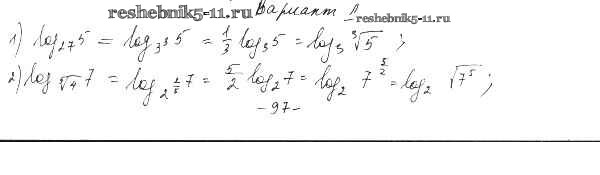 reshebnik5-11.ru Вариант 1 reshebnik5-11.ru
1) log₂₇5 = log₃³5 = 1/3 log₃5 = log₃ ∛5 ;
2) log ⁵√4 7 = log 2^(2/5) 7 = 5/2 log₂7 = log₂ 7^(5/2) = log₂ √7⁵ ;
-97-